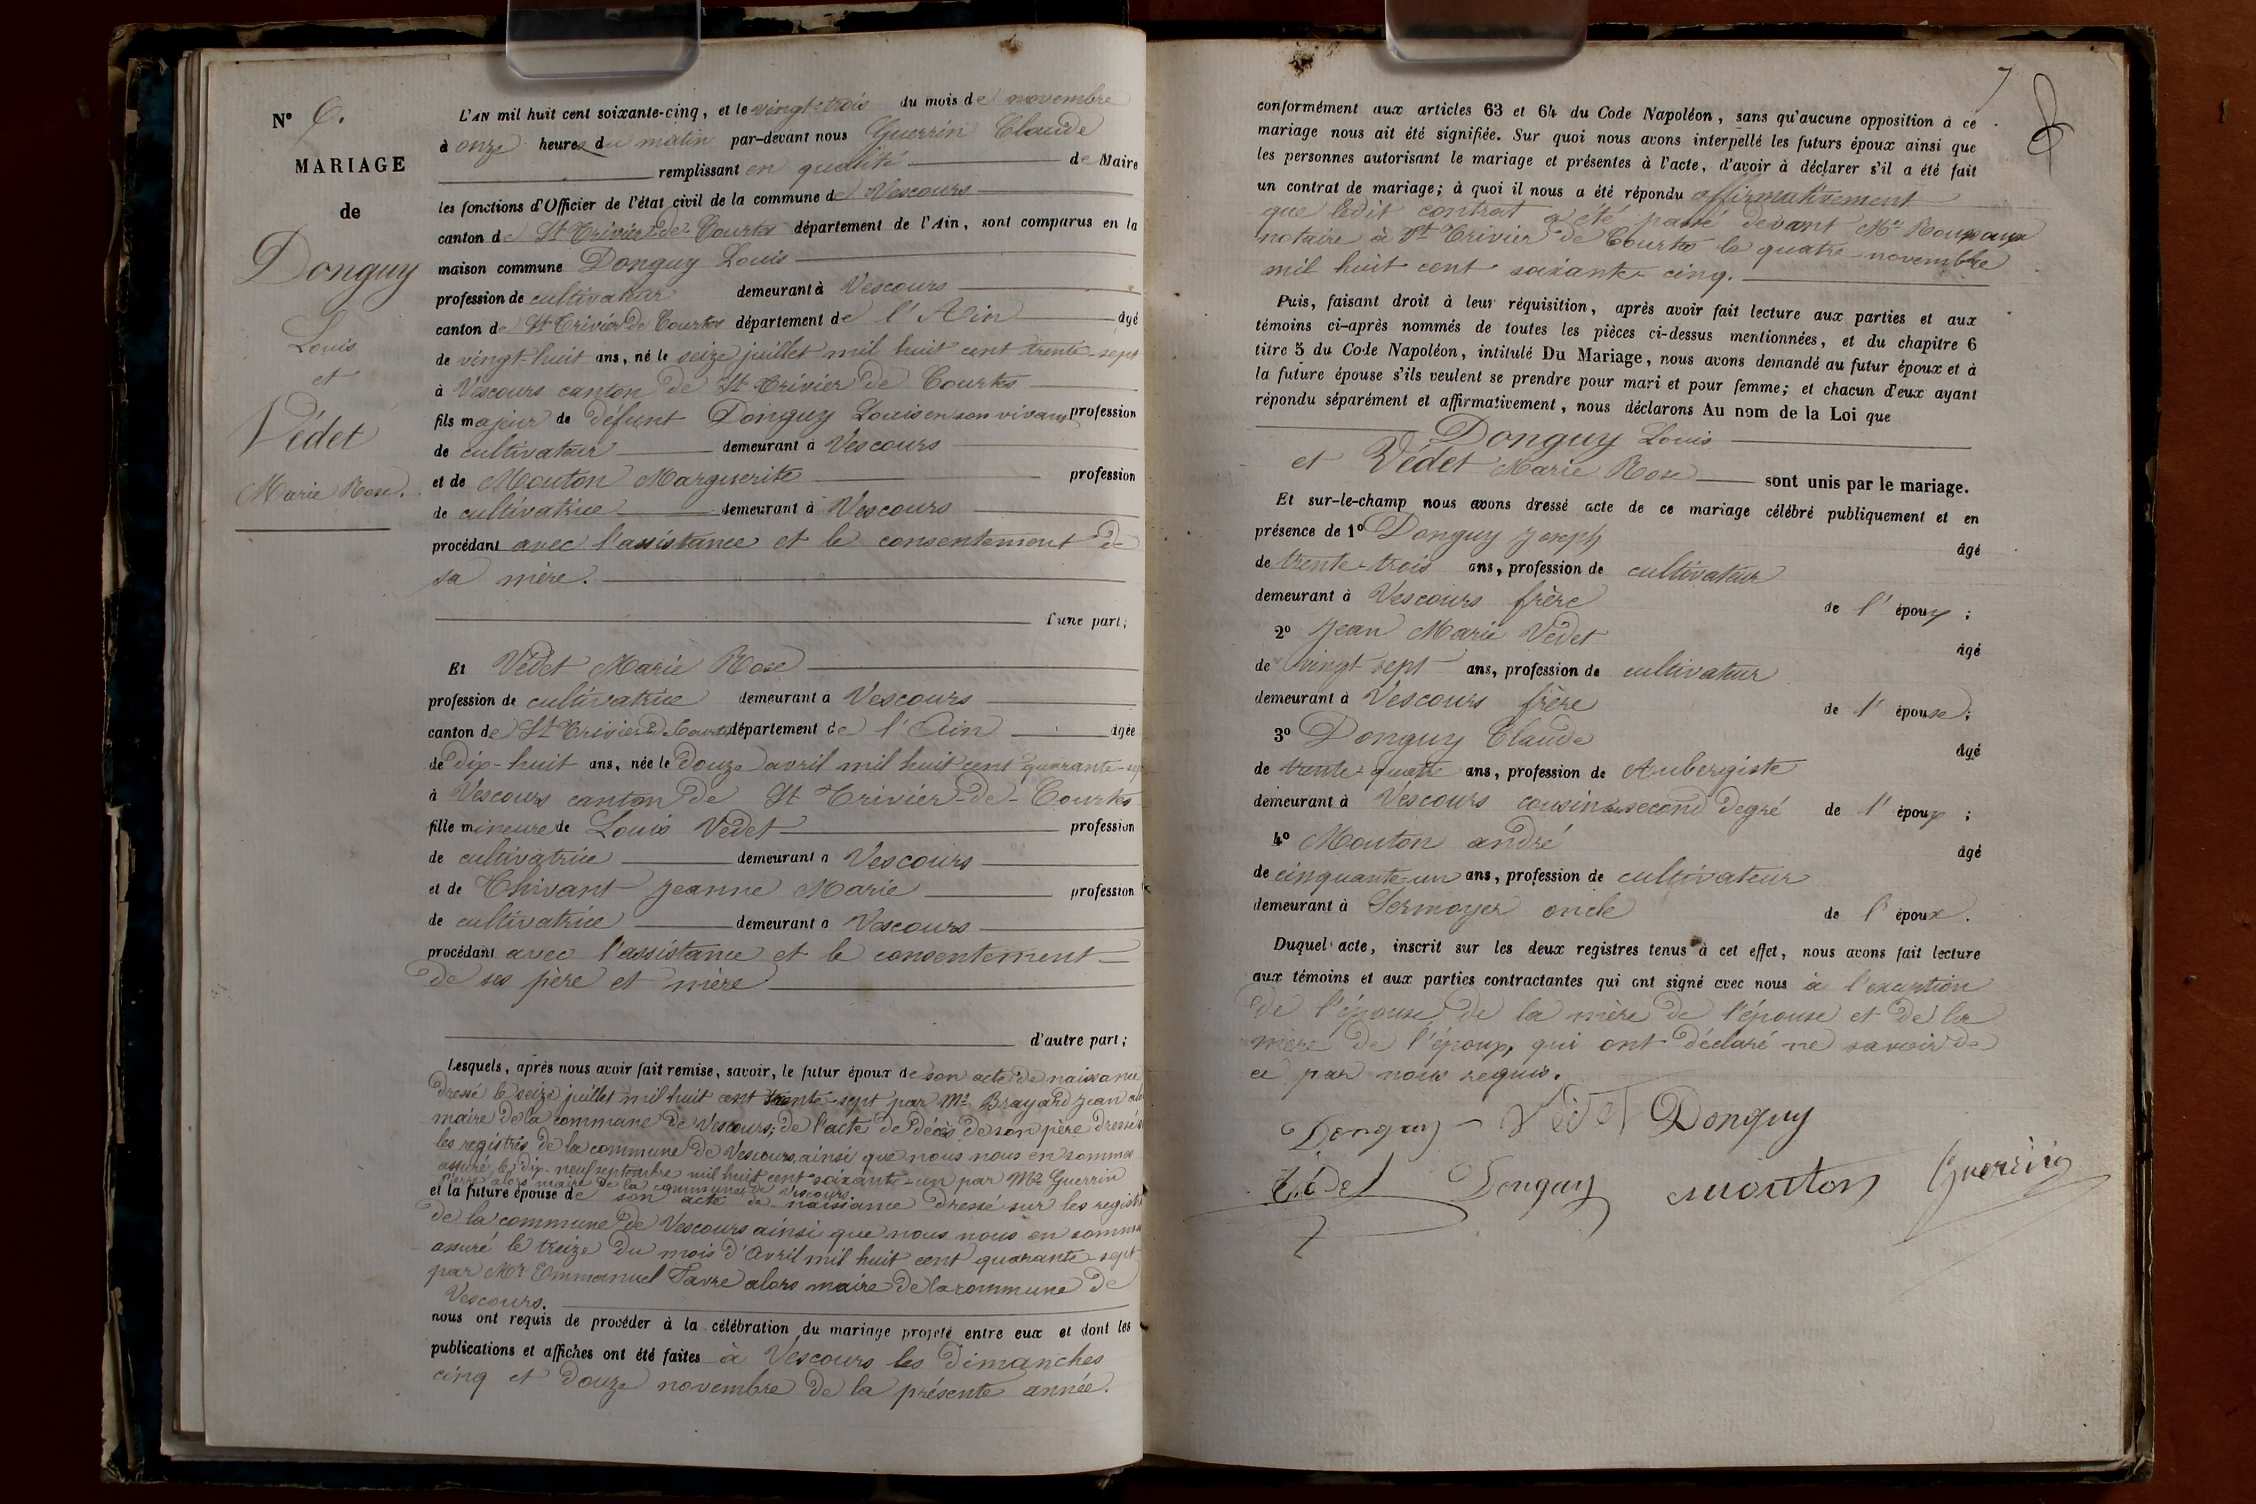 N° 6.
MARIAGE
de
Donguy
Louis
et
Védet
Marie Rose.
L'AN mil huit cent soixante-cinq, et le vingt-trois du mois de novembre
à onze heures du matin par-devant nous Guerrin Claude
remplissant en qualité de Maire
les fonctions d'Officier de l'état civil de la commune de Vescours
canton de St Trivier de Courtes département de l'Ain, sont comparus en la
maison commune Donguy Louis
profession de cultivateur demeurant à Vescours
canton de St Trivier de Courtes département de l'Ain âgé
de vingt-huit ans, né le seize juillet mil huit cent trente-sept
à Vescours canton de St Trivier de Courtes
fils majeur de défunt Donguy Louis en son vivant profession
de cultivateur demeurant à Vescours
et de Mouton Marguerite profession
de cultivatrice demeurant à Vescours
procédant avec l'assistance et le consentement de
sa mère.
d'une part;
Et Védet Marie Rose
profession de cultivatrice demeurant à Vescours
canton de St Trivier de Courtes département de l'Ain âgée
de dix-huit ans, née le douze avril mil huit cent quarante-sep
à Vescours canton de St Trivier-de-Courtes
fille mineure de Louis Védet profession
de cultivatrice demeurant à Vescours
et de Chivant Jeanne Marie profession
de cultivatrice demeurant à Vescours
procédant avec l'assistance et le consentement
de ses père et mère
d'autre part;
Lesquels, après nous avoir fait remise, savoir, le futur époux de son acte de naissance
dressé le seize juillet mil huit cent trente-sept par Mr Brayard Jean alo
maire de la commune de Vescours; de l'acte de décès de son père dressé s
les registres de la commune de Vescours ainsi que nous nous en sommes
assuré le dix-neuf septembre mil huit cent soixante-un par Mr Guerrin
Pierre alors maire de la commune de Vescours.
et la future épouse de son acte de naissance dressé sur les regist
de la commune de Vescours ainsi que nous nous en sommes
assuré le treize du mois d'Avril mil huit cent quarante-sept
par Mr Emmanuel Favre alors maire de la commune de
Vescours.
nous ont requis de procéder à la célébration du mariage projeté entre eux et dont les
publications et affiches ont été faites à Vescours les dimanches
cinq et douze novembre de la présente année.
7
conformément aux articles 63 et 64 du Code Napoléon, sans qu'aucune opposition à ce
mariage nous ait été signifiée. Sur quoi nous avons interpellé les futurs époux ainsi que
les personnes autorisant le mariage et présentes à l'acte, d'avoir à déclarer s'il a été fait
un contrat de mariage; à quoi il nous a été répondu affirmativement
que ledit contrat a été passé devant Me
notaire à St Trivier de Courtes le quatre novembre
mil huit cent soixante cinq.
Puis, faisant droit à leur réquisition, après avoir fait lecture aux parties et aux
témoins ci-après nommés de toutes les pièces ci-dessus mentionnées, et du chapitre 6
titre 5 du Code Napoléon, intitulé Du Mariage, nous avons demandé au futur époux et à
la future épouse s'ils veulent se prendre pour mari et pour femme; et chacun d'eux ayant
répondu séparément et affirmativement, nous déclarons Au nom de la Loi que
Donguy Louis
et Védet Marie Rose sont unis par le mariage.
Et sur-le-champ nous avons dressé acte de ce mariage célébré publiquement et en
présence de 1° Donguy Joseph âgé
de trente-trois ans, profession de cultivateur
demeurant à Vescours frère de l'époux;
2° Jean Marie Védet âgé
de vingt sept ans, profession de cultivateur
demeurant à Vescours frère de l'épouse;
3° Donguy Claude âgé
de trente-quatre ans, profession de Aubergiste
demeurant à Vescours cousin au second degré de l'époux;
4° Mouton andré âgé
de cinquante un ans, profession de cultivateur
demeurant à Sermoyer oncle de l'époux.
Duquel acte, inscrit sur les deux registres tenus à cet effet, nous avons fait lecture
aux témoins et aux parties contractantes qui ont signé avec nous à l'exception
de l'épouse, de la mère de l'épouse et de la
mère de l'époux, qui ont déclaré ne savoir de
ce par nous requis.
Donguy Védet Donguy
Védet Donguy Mouton Guerrin